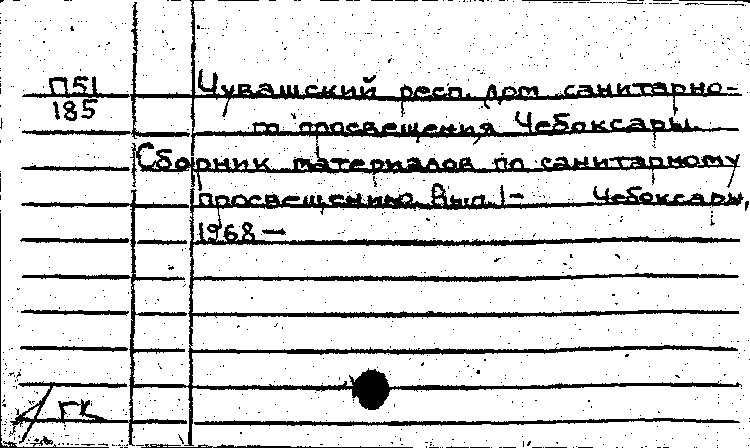 П51
185
Чувашский респ. дом санитарно-
го просвещения, Чебоксары.
Сборник материалов по санитарному
просвещению. Вып. 1- Чебоксары,
1968 —
ГК